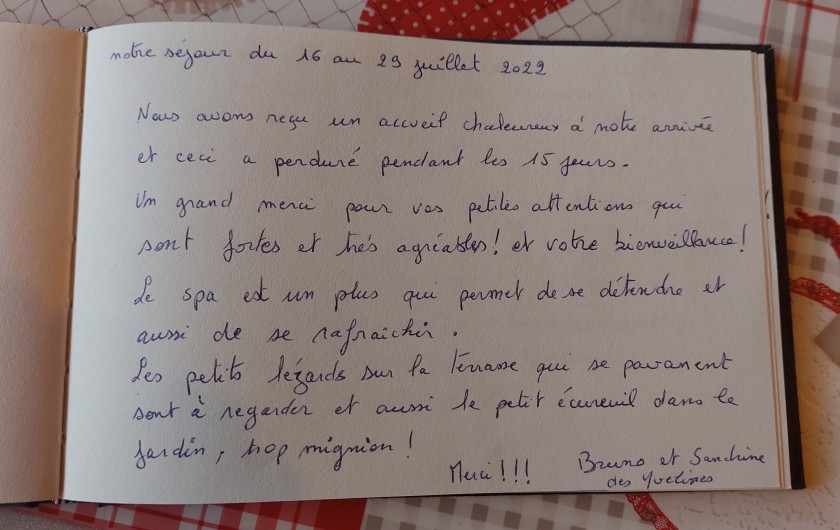 notre séjour du 16 au 29 juillet 2022
Nous avons reçu un accueil chaleureux à notre arrivée
et ceci a perduré pendant les 15 jours.
Un grand merci pour vos petites attentions qui
sont fortes et très agréables! et votre bienveillance!
Le spa est un plus qui permet de se détendre et
aussi de se rafraichir.
Les petits lézards sur la terrasse qui se pavanent
sont à regarder et aussi le petit écureuil dans le
jardin, trop mignion!
Merci!!! Bruno et Sandrine
des Yvelines